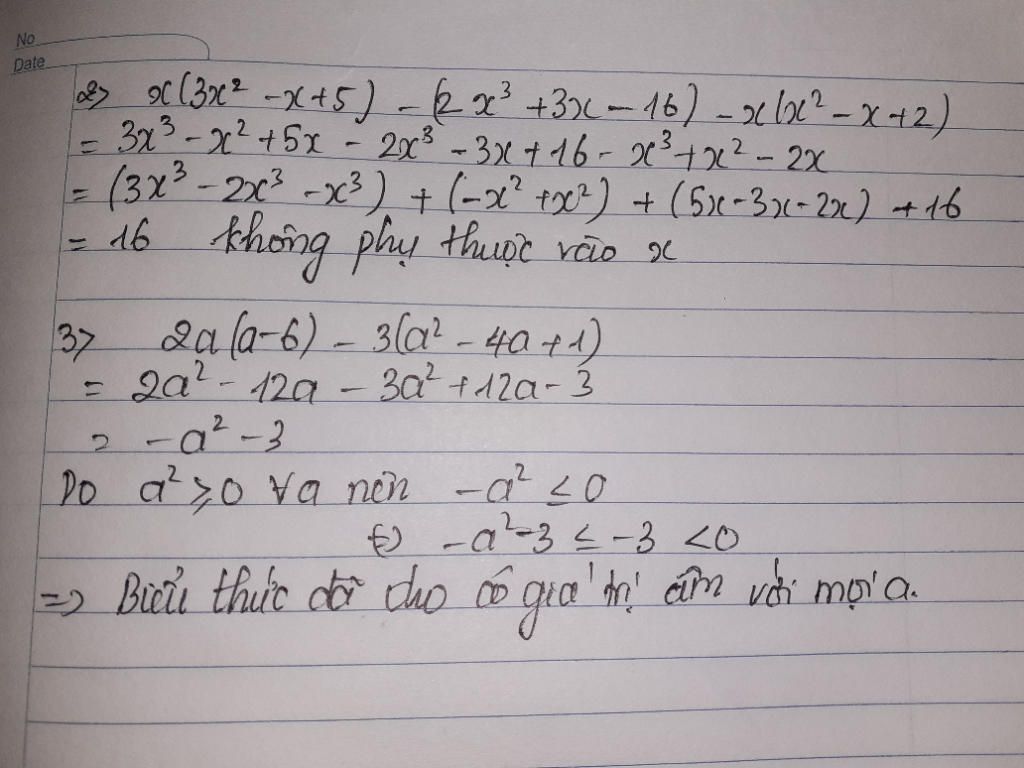 No
Date
2> x(3x² - x + 5) - (2x³ + 3x - 16) - x(x² - x + 2)
= 3x³ - x² + 5x - 2x³ - 3x + 16 - x³ + x² - 2x
= (3x³ - 2x³ - x³) + (-x² + x²) + (5x - 3x - 2x) + 16
= 16 không phụ thuộc vào x
3> 2a(a-6) - 3(a² - 4a + 1)
= 2a² - 12a - 3a² + 12a - 3
= -a² - 3
Do a² ≥ 0 ∀a nên -a² ≤ 0
⇔ -a² - 3 ≤ -3 < 0
=> Biểu thức đã cho có giá trị âm với mọi a.